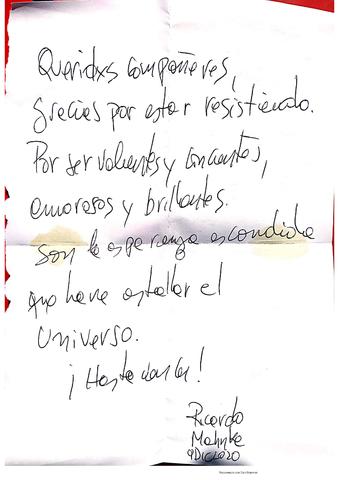 Queridxs compañeres,
gracias por estar resistiendo.
Por ser valientes y
amorosos y brillantes.
son la esperanza escondida
que hace estallar el
Universo.
¡Hasta
Ricardo
9 Dic 2020